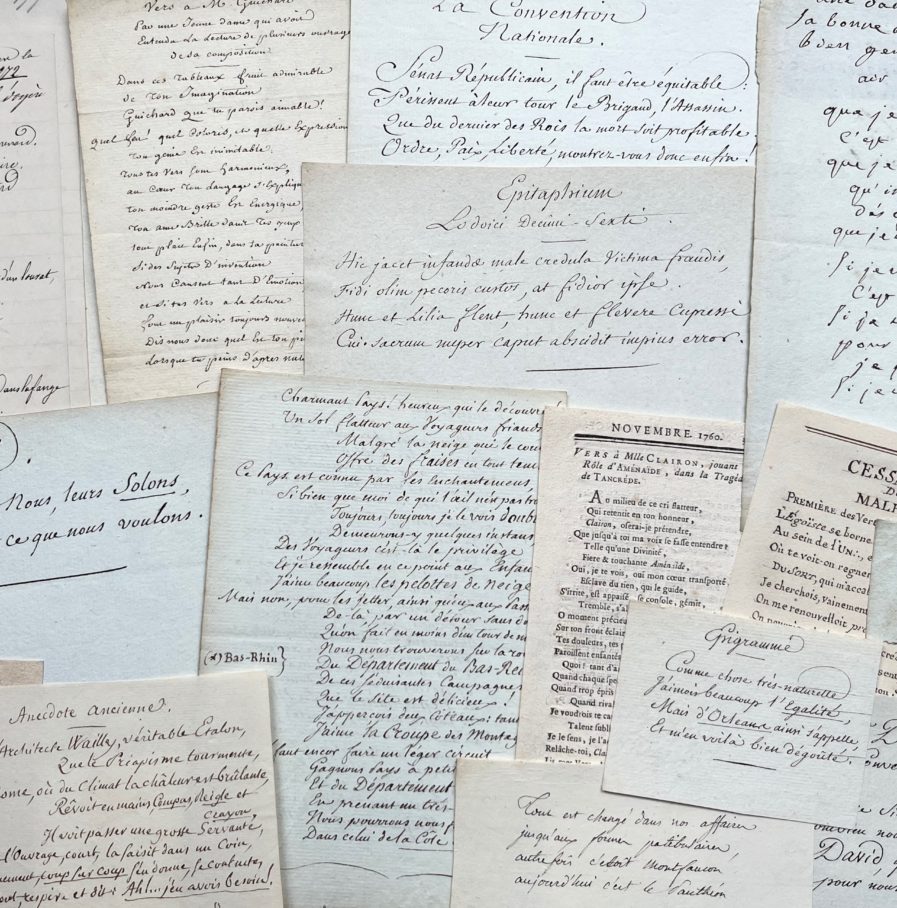 Vers à M. Guichard
Par une Jeune dame qui avoit
Entendu La Lecture de plusieurs ouvrages
de sa composition
Dans ces Tableaux fruit admirable
de Ton Imagination
Guichard que tu parois aimable!
quel coloris, et quelle Expression
Ton génie Est inimitable.
Tous tes Vers Sont harmonieux,
au Cœur Ton Langage S'Explique
Ton moindre geste Est Energique
Ton ame Brille dans Tes yeux
tout plait Enfin, dans ta peinture
Si des Sujets D'invention
Nous Causent tant D'Emotion
et si tes Vers a la Lecture
Sont un plaisir toujours nouve
Dis nous donc quel Est ton pi
Lorsque tu peins d'apres natu
La Convention
Nationale.
Sénat Républicain, il faut être équitable:
Périssent à leur tour le Brigand, l'Assassin.
Que du dernier des Rois la mort soit profitable:
Ordre, Paix, Liberté, montrez-vous donc enfin!
Epitaphium
Lodoici Decimi-Sexti.
Hic jacet infandæ male credula Victima fraudis,
Fidi olim pecoris custos, at fidior ipse.
Hunc et Lilia flent, hunc et flevere Cupressi
Cui sacrum nuper caput abscidit impius error.
sa bonne
bien ge
que je
C'est
que je
qu'i
que je
Si je
C'est
Si ja
pour
je
Si je
dans la fange
Nous, leurs Solons,
ce que nous voulons.
Charmant Pays! heureux qui le découvre
Un Sol flatteur aux Voyageurs friands
Malgré la neige qui le cou
Offre des fraises en tout tem
Ce Pays est connu par ses Enchantemens,
Si bien que moi de qui l'œil n'est pas tro
Toujours, toujours je le vois doub
Demeurons-y quelques instans
Des Voyageurs c'est-là le privilége
Et je ressemble en ce point aux Enfan
J'aime beaucoup les pelottes de neige
Mais non, pour les jetter, ainsi qu'eux aux Pass
De-là, par un détour sans d
Qu'on fait en moins d'un tour de m
Nous nous trouverons sur la ro
(*) Bas-Rhin}
Du Département du Bas-Re
De ces séduisantes Campagnes
Que le site est délicieux!
J'apperçois deux Côteaux: tan
J'aime la Croupe des Montag
faut encor faire un léger circuit
Gagnons Pays à peti
Et du Département
En prenant un très-
Nous pourrons nous
Dans celui de la Côte
NOVEMBRE. 1760.
VERS à Mlle CLAIRON, jouant
Rôle d'AMÉNAÏDE, dans la Tragéd
de TANCRÈDE.
AU milieu de ce cri flatteur,
Qui retentit en ton honneur,
Clairon, oserai-je prétendre,
Que jusqu'à toi ma voix se fasse entendre?
Telle qu'une Divinité,
Fiere & touchante Aménaïde,
Oui, je te vois, oui mon cœur transporté
Esclave du tien, qui le guide,
S'irrite, est appaisé, se console, gémit,
Tremble, s'al
O moment précieux
Sur ton front éclair
Tes douleurs, tes
Paroissent enfanté
Quoi! tant d'a
Quand chaque spe
Quand trop épris
Je voudrois te ca
Talent subli
Je le sens, je l'a
Relâche-toi, Cla
CESS
MALH
PREMIÈRE des Ver
L'Égoïste se borne
Au sein de l'Un
Où te voit-on regner
Du SORT, qui m'acca
Je cherchois, vainemen
On me renouvelloit
Epigramme
Comme chose très-naturelle
J'aimois beaucoup l'Egalité,
Mais d'Orléans ainsi s'appelle,
Et m'en voilà bien dégoûté.
Anecdote ancienne.
Architecte Wailly, véritable Etalon,
Que le Priapisme tourmente,
ome, où du Climat la châleur est brûlante,
Rêvoit en mains Compas, Reigle et
Crayon,
Il voit passer une grosse Servante,
l'Ouvrage, court, la saisit dans un Coin,
coup sur coup s'en donne, se contente,
respire et dit: Ah!... j'en avois besoin!
Tout est changé dans nos affaires
jusqu'aux formes patibulaires,
autre fois c'étoit montfaucon
aujourd'hui c'est le Panthéon
David
pour nou